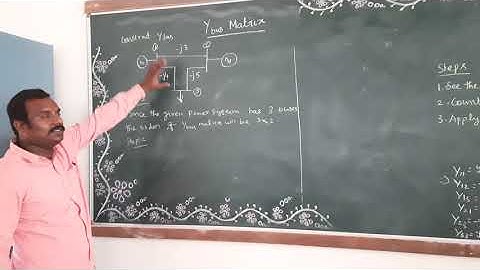 Ybus Matrix
Construct Ybus
① -j3 ②
-j5
③
Since the given Power System has 3 buses
the order of Ybus matrix will be 3x3
Step-2
Steps
1. See the
2. Count
3. Apply
Y11 =
Y12 =
Y13 =
Y21 =